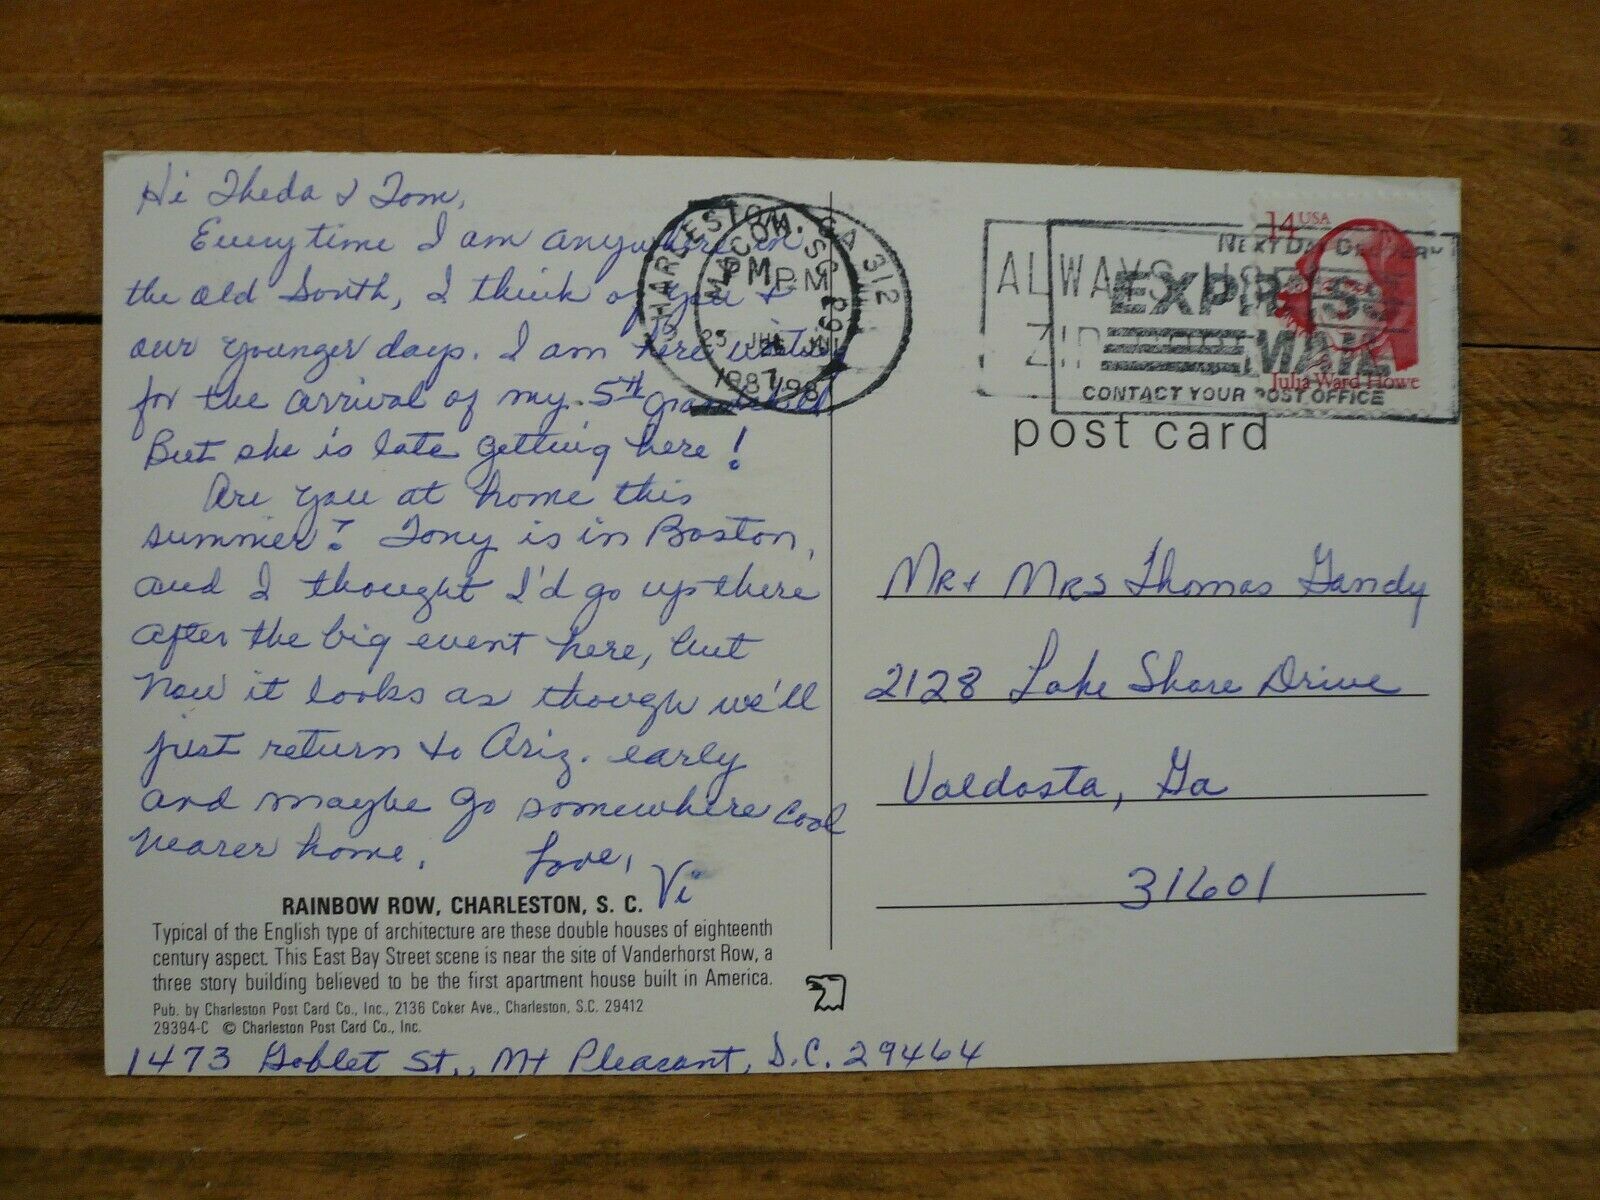 Hi Theda & Tom,
Everytime I am anywhere in
the old South, I think of you &
our younger days. I am here waiting
for the arrival of my 5th grandchild
But she is late getting here!
Are you at home this
summer? Tony is in Boston,
and I thought I'd go up there
after the big event here, but
now it looks as though we'll
just return to Ariz. early
and maybe go somewhere cool
nearer home.
Love,
Vi
RAINBOW ROW, CHARLESTON, S. C.
Typical of the English type of architecture are these double houses of eighteenth
century aspect. This East Bay Street scene is near the site of Vanderhorst Row, a
three story building believed to be the first apartment house built in America.
Pub. by Charleston Post Card Co., Inc., 2136 Coker Ave., Charleston, S.C. 29412
29394-C © Charleston Post Card Co., Inc.
1473 Goblet St., Mt Pleasant, S.C. 29464
CHARLESTON, SC
PM
25
1987
MACON, GA 312
PM
198
ALWAYS USE
ZIP
NEXT DAY DELIVERY
EXPRESS
MAIL
CONTACT YOUR POST OFFICE
14 USA
Julia Ward Howe
post card
Mr & Mrs Thomas Gandy
2128 Lake Shore Drive
Valdosta, Ga
31601